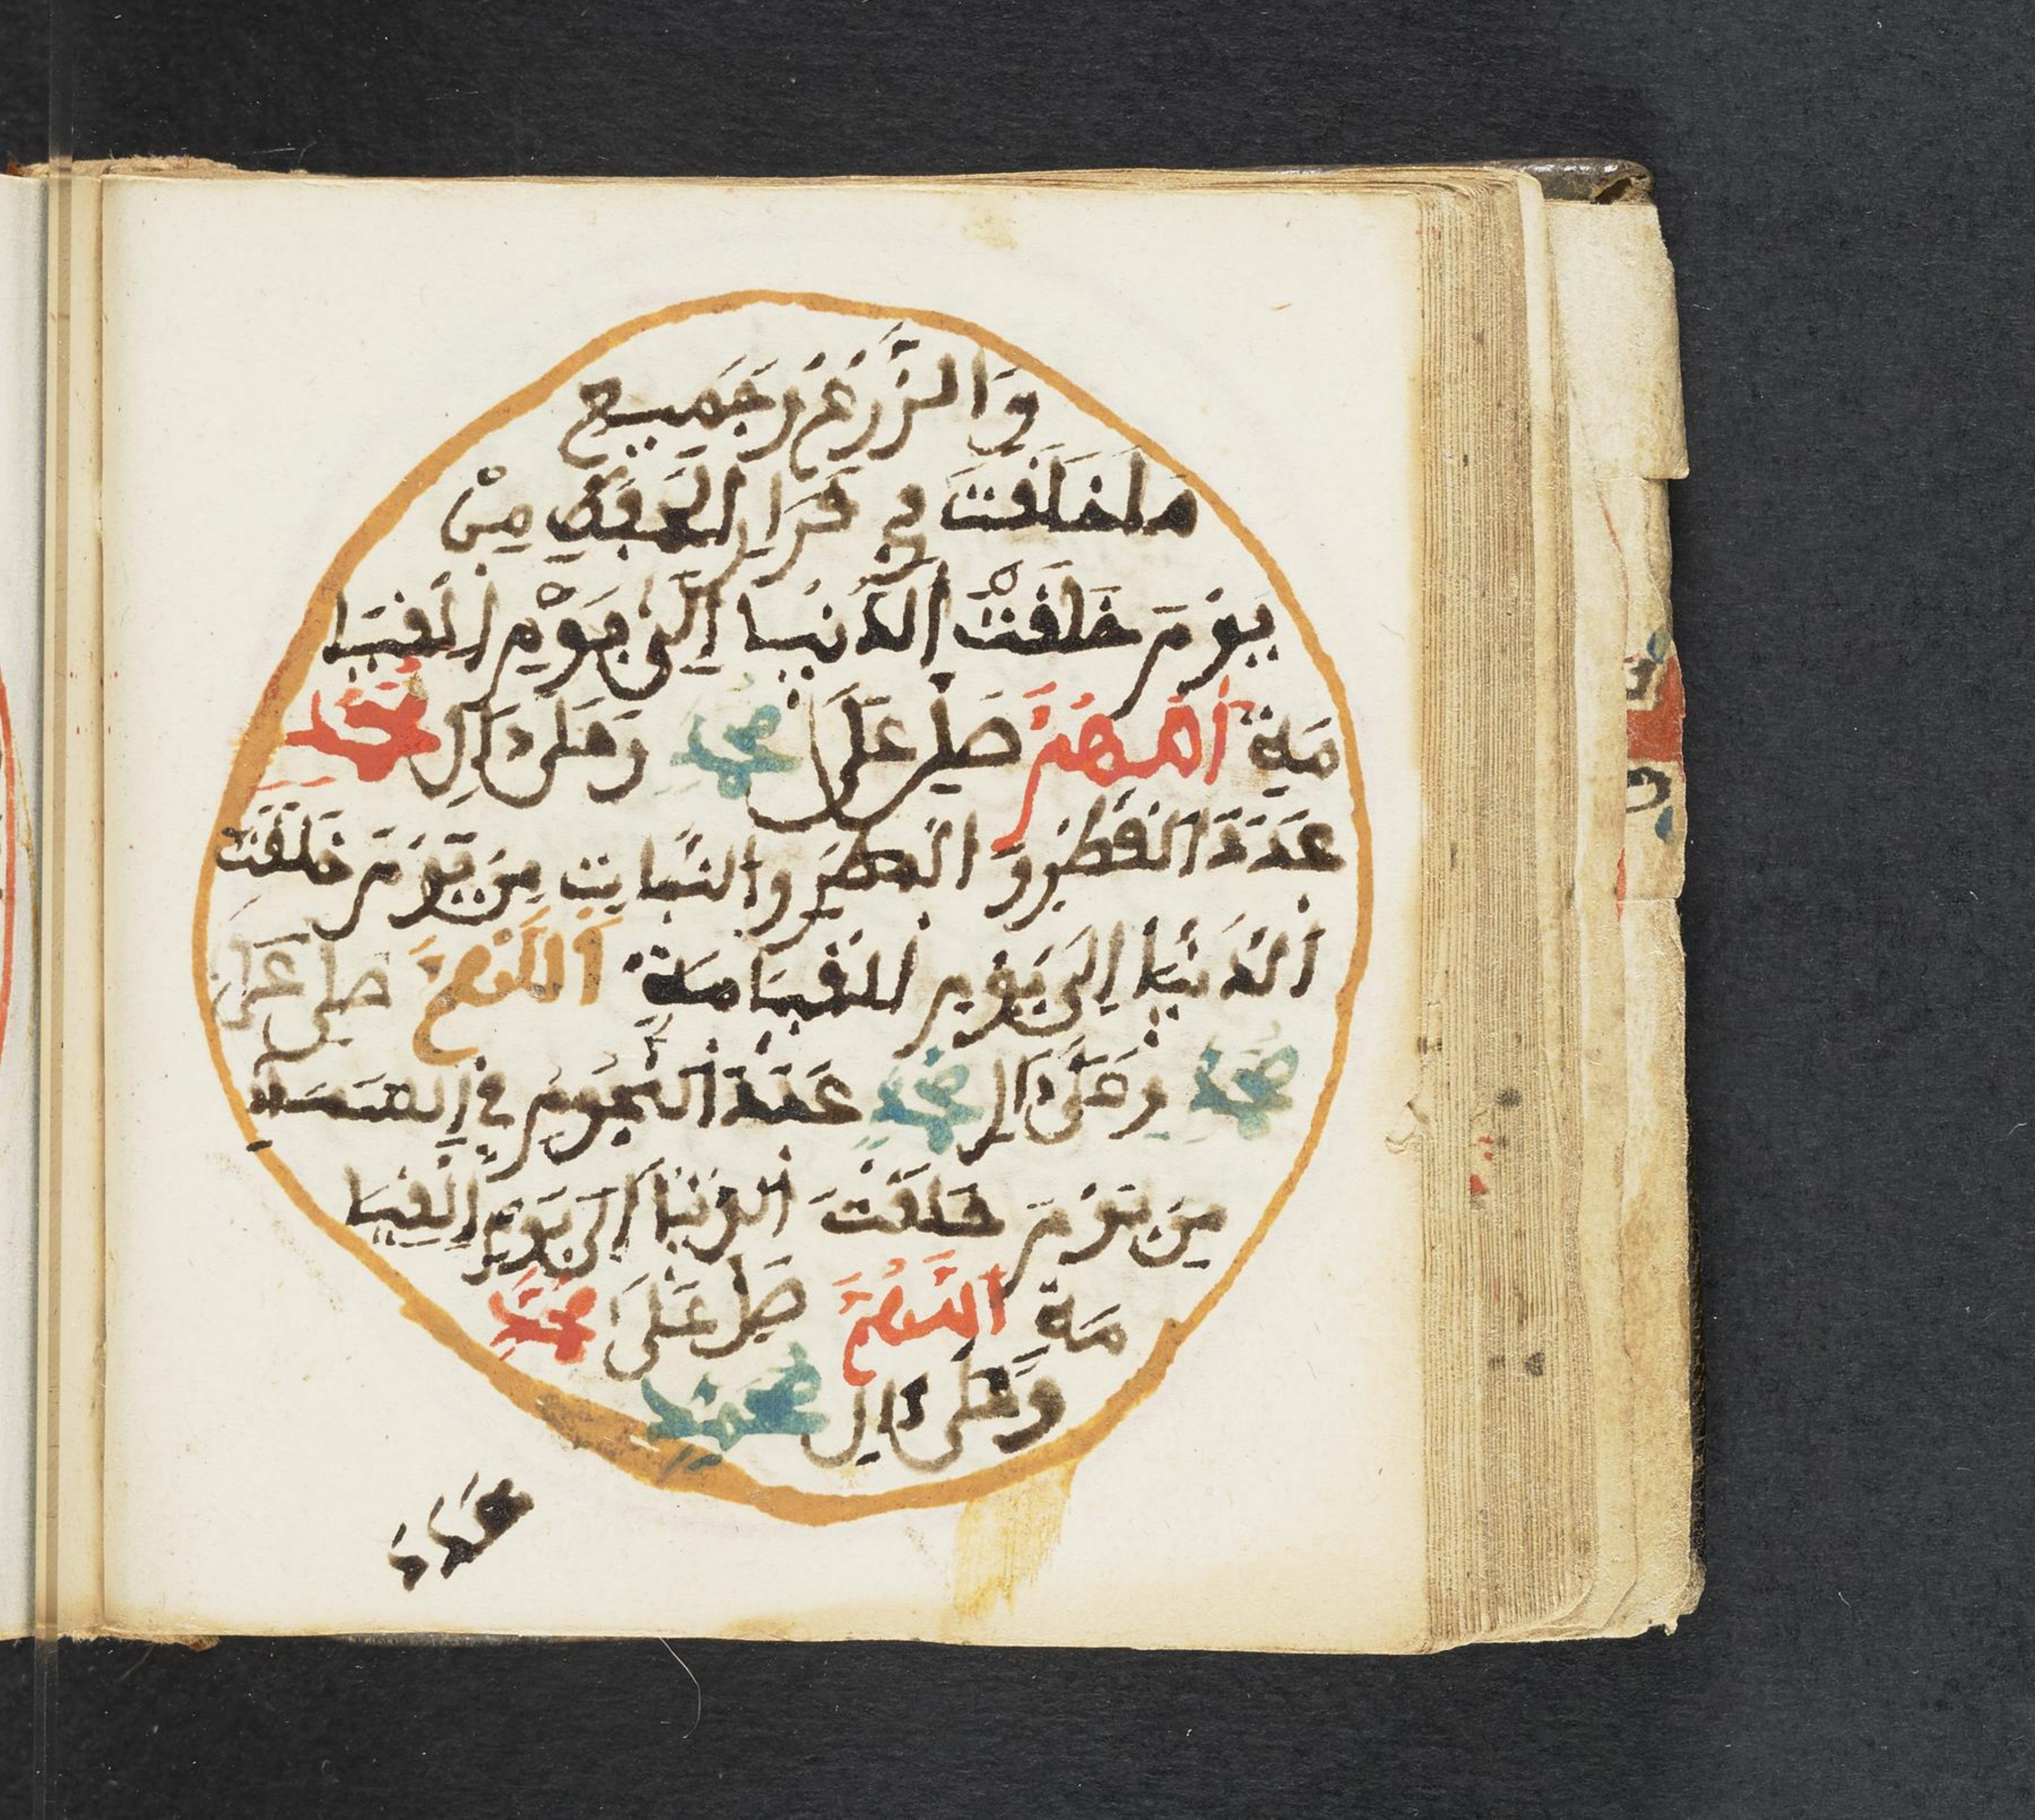 وَالزَّرْعِ وَجَمِيعِ
مَا خَلَقْتَ فِي قَرَارِ الْحِفْظِ مِنْ
يَوْمَ خَلَقْتَ الدُّنْيَا إِلَى يَوْمِ الْقِيَا
مَةِ اَللَّهُمَّ صَلِّ عَلَى مُحَمَّدٍ وَعَلَى ءَالِ مُحَمَّدٍ
عَدَدَ الْقَطْرِ وَ الْمَطَرِ وَالنَّبَاتِ مِنْ يَوْمَ خَلَقْتَ
اَلدُّنْيَا إِلَى يَوْمِ الْقِيَامَةِ اَللَّهُمَّ صَلِّ عَلَى
مُحَمَّدٍ وَعَلَى ءَالِ مُحَمَّدٍ عَدَدَ النُّجُومِ فِي السَّمَاءِ
مِنْ يَوْمَ خَلَقْتَ الدُّنْيَا إِلَى يَوْمِ الْقِيَا
مَةِ اَللَّهُمَّ صَلِّ عَلَى مُحَمَّدٍ
وَعَلَى ءَالِ مُحَمَّدٍ
عَدَدَ